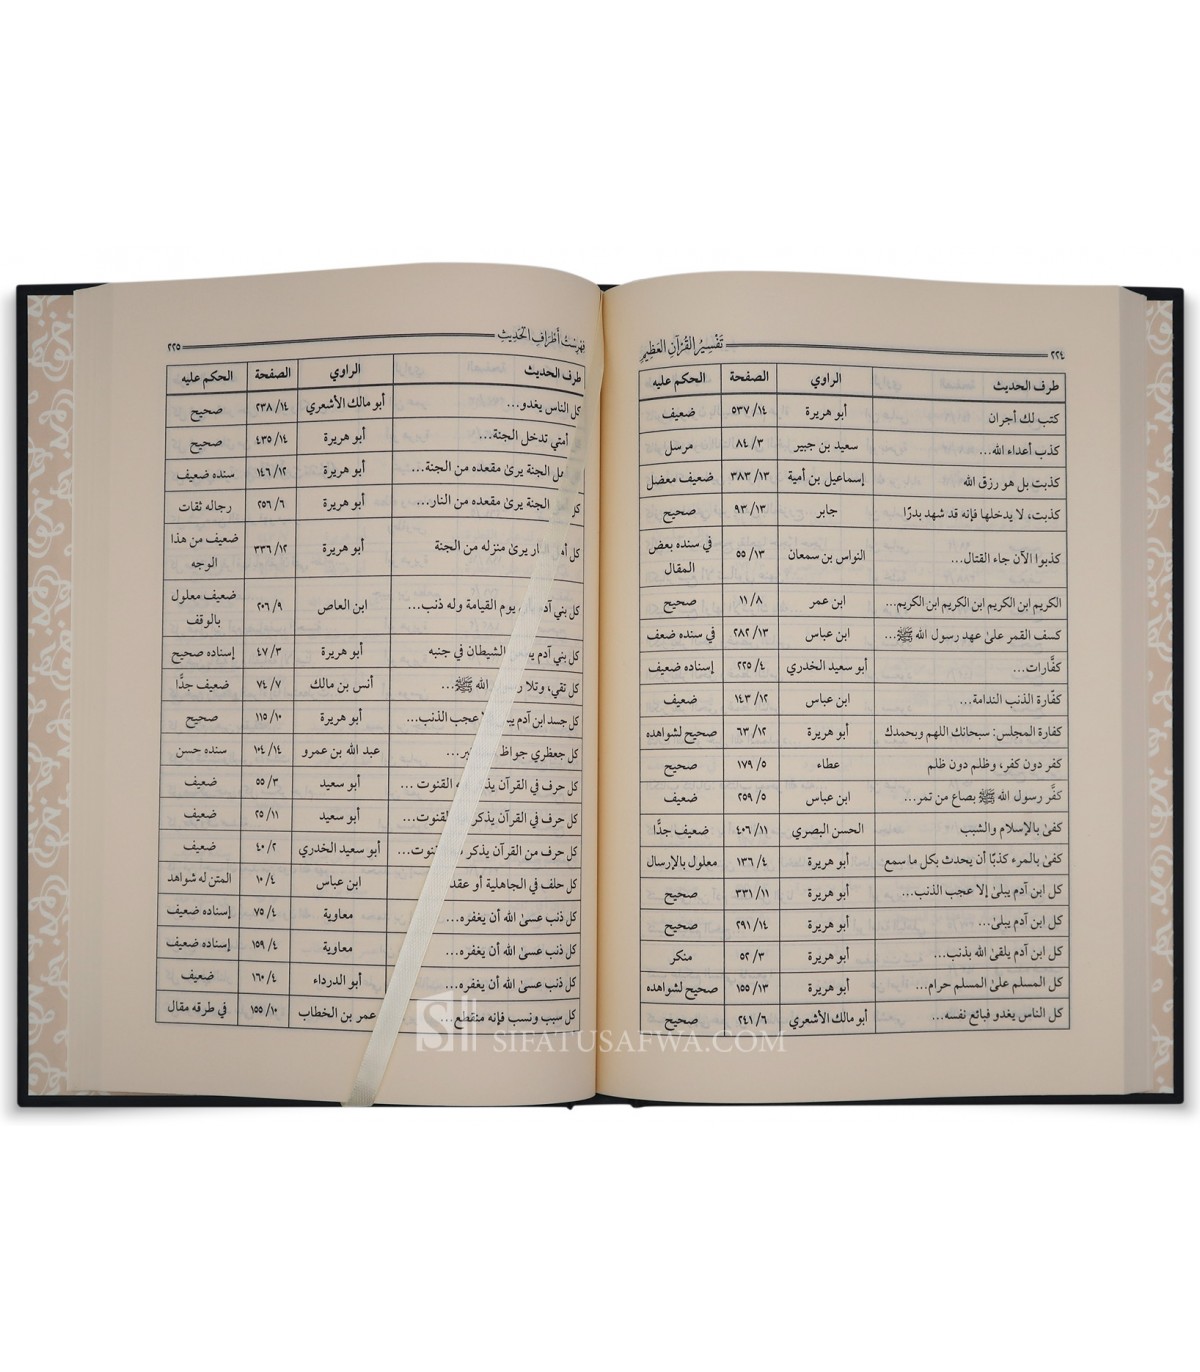 ٢٢٤ تَفْسِيرُ القُرْآنِ العَظِيمِ
طرف الحديث الراوي الصفحة الحكم عليه
كتب لك أجران أبو هريرة ١٤/ ٥٣٧ ضعيف
كذب أعداء الله... سعيد بن جبير ٣/ ٨٤ مرسل
كذبت بل هو رزق الله إسماعيل بن أمية ١٣/ ٣٨٣ ضعيف معضل
كذبت، لا يدخلها فإنه قد شهد بدرًا جابر ١٣/ ٩٣ صحيح
كذبوا الآن جاء القتال... النواس بن سمعان ١٣/ ٥٥ في سنده بعض
المقال
الكريم ابن الكريم ابن الكريم ابن الكريم... ابن عمر ٨/ ١١ صحيح
كسف القمر علىٰ عهد رسول الله ﷺ... ابن عباس ١٣/ ٢٨٢ في سنده ضعف
كفَّارات... أبو سعيد الخدري ٤/ ٢٢٥ إسناده ضعيف
كفّارة الذنب الندامة... ابن عباس ١٢/ ١٤٣ ضعيف
كفارة المجلس: سبحانك اللهم وبحمدك أبو هريرة ١٢/ ٦٣ صحيح لشواهده
كفر دون كفر، وظلم دون ظلم عطاء ٥/ ١٧٩ صحيح
كفَّر رسول الله ﷺ بصاع من تمر... ابن عباس ٥/ ٢٥٩ ضعيف
كفىٰ بالإسلام والشيب الحسن البصري ١١/ ٤٠٦ ضعيف جدًّا
كفىٰ بالمرء كذبًا أن يحدث بكل ما سمع أبو هريرة ٤/ ١٣٦ معلول بالإرسال
كل ابن آدم يبلىٰ إلا عجب الذنب... أبو هريرة ١١/ ٣٣١ صحيح
كل ابن آدم يبلىٰ... أبو هريرة ١٤/ ٢٩١ صحيح
كل ابن آدم يلقىٰ الله بذنب... أبو هريرة ٣/ ٥٢ منكر
كل المسلم علىٰ المسلم حرام... أبو هريرة ١٣/ ١٥٥ صحيح لشواهده
كل الناس يغدو فبائع نفسه... أبو مالك الأشعري ٦/ ٢٤١ صحيح
فهرست أطْرَافِ الحَدِيثِ ٢٢٥
طرف الحديث الراوي الصفحة الحكم عليه
كل الناس يغدو... أبو مالك الأشعري ١٤/ ٢٣٨ صحيح
أمتي تدخل الجنة... أبو هريرة ١٤/ ٤٣٥ صحيح
الجنة يرىٰ مقعده من الجنة... أبو هريرة ١٢/ ١٤٦ سنده ضعيف
الجنة يرىٰ مقعده من النار... أبو هريرة ٦/ ٢٥٦ رجاله ثقات
كل يرىٰ منزله من الجنة أبو هريرة ١٢/ ٣٣٦ ضعيف من هذا
الوجه
كل بني يوم القيامة وله ذنب... ابن العاص ٩/ ٢٠٦ ضعيف معلول
بالوقف
كل بني آدم الشيطان في جنبه أبو هريرة ٣/ ٤٧ إسناده صحيح
كل تقي، وتلا الله ﷺ... أنس بن مالك ٧/ ٧٤ ضعيف جدًّا
كل جسد ابن آدم عجب الذنب... أبو هريرة ١٠/ ١١٥ صحيح
كل جعظري جواظ عبد الله بن عمرو ١٤/ ١٠٤ سنده حسن
كل حرف في القرآن القنوت ... أبو سعيد ٣/ ٥٥ ضعيف
كل حرف في القرآن يذكر القنوت... أبو سعيد ١١/ ٢٥ ضعيف
كل حرف من القرآن يذكر القنوت... أبو سعيد الخدري ٢/ ٤٠ ضعيف
كل حلف في الجاهلية أو عقد ابن عباس ٤/ ١٠ المتن له شواهد
كل ذنب عسىٰ الله أن يغفره... معاوية ٤/ ٧٥ إسناده ضعيف
كل ذنب عسىٰ الله أن يغفره... معاوية ٤/ ١٥٩ إسناده ضعيف
كل ذنب عسىٰ الله أن يغفره... أبو الدرداء ٤/ ١٦٠ ضعيف
كل سبب ونسب فإنه منقطع... عمر بن الخطاب ١٠/ ١٥٥ في طرقه مقال
SIFATUSAFWA.COM